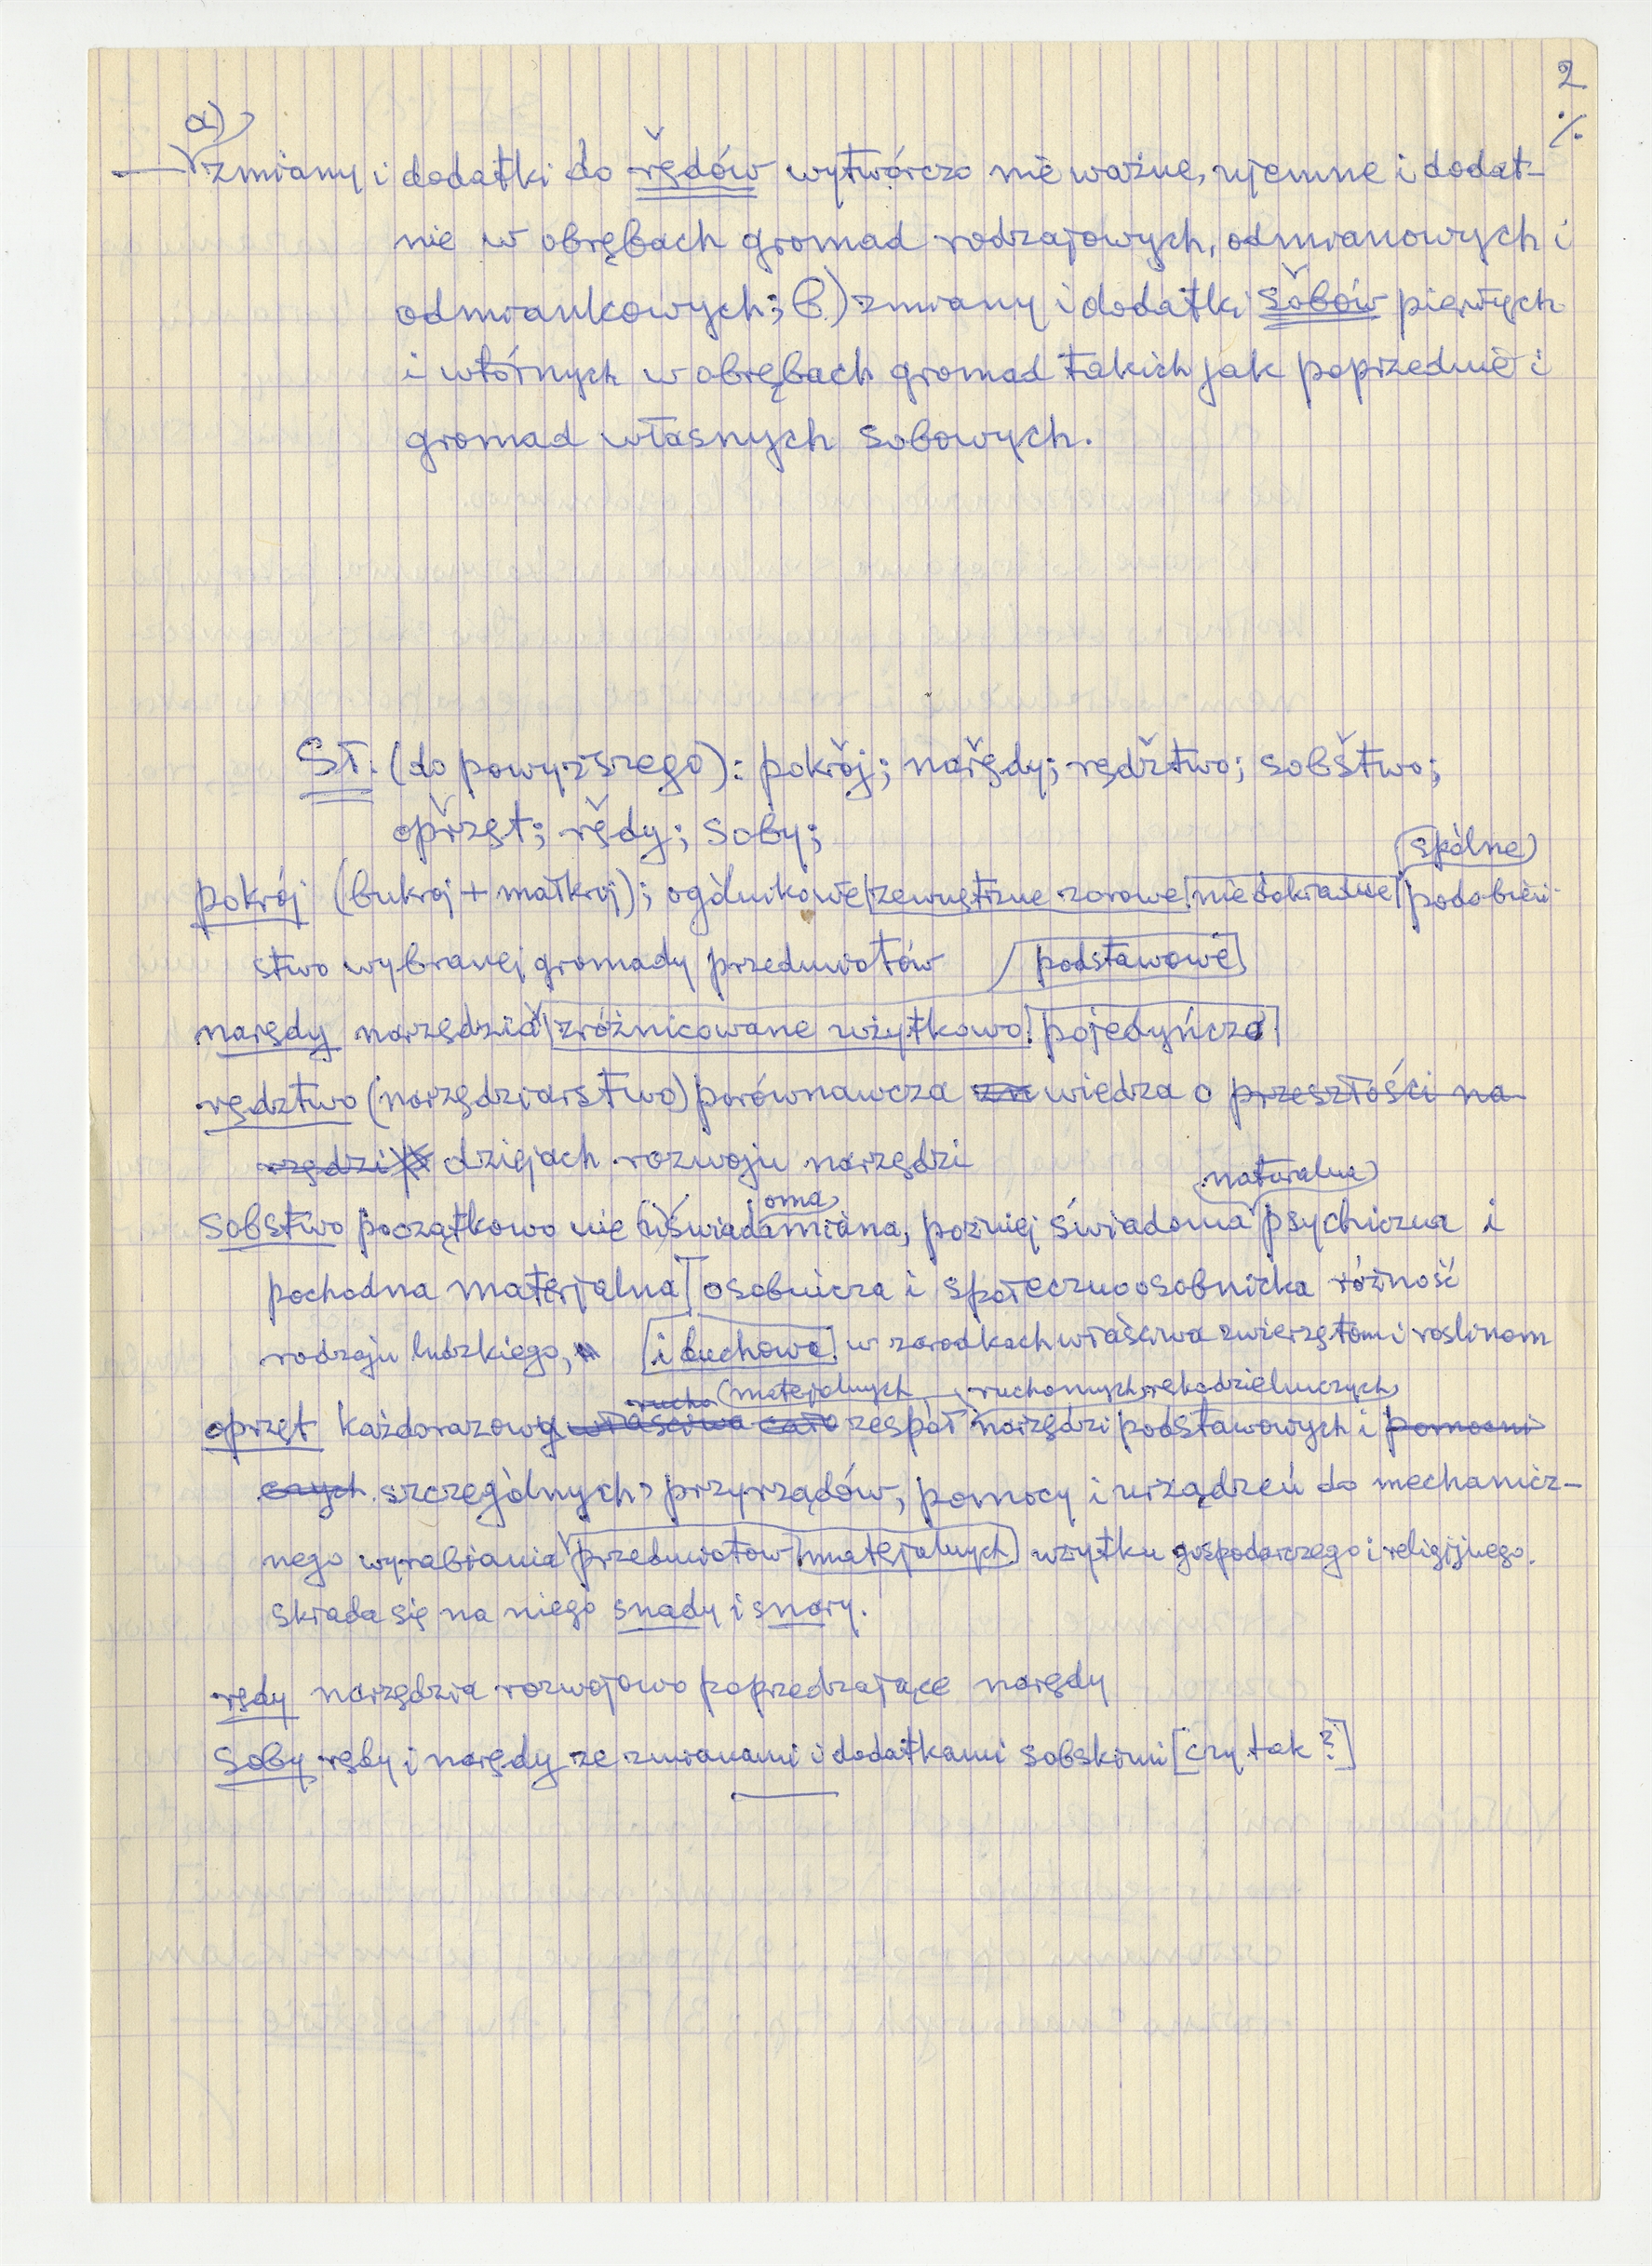 2
·/.
a)
— zmiany i dodatki do řędów wytwórczo nie ważne, ujemne i dodat-
nie w obrębach gromad rodzajowych, odmianowych i
odmiankowych; b) zmiany i dodatki sǒbów pierwych
i wtórnych w obrębach gromad takich jak poprzednie i
gromad własnych sobowych.
Sł. (do powyższego): pokřój; nařędy; rędžtwo; sobštwo;
opřzęt; řędy; soby;
spólne
pokrój (bukroj + małkrój); ogólnikowe zewnętrzne zorowe niedokładne podobień-
stwo wybranej gromady przedmiotów podstawowe
narędy narzędzia zróżnicowane użytkowo pojedyńcze
rędztwo (narzędziarstwo) porównawcza zn wiedza o przeszłości na
rzędzi dziejach rozwoju narzędzi
oma naturalna
sobstwo początkowo nie uświadamiana, pozniej świadoma psychiczna i
pochodna materjalna osobnicza i społecznoosobnicka różność
rodzaju ludzkiego, i duchowa w zarodkach właściwa zwierzętom i roslinom
rucho materjalnych ruchomych, rękodzielniczych,
oprzęt każdorazowy właściwa cało zespół narzędzi podstawowych i pomocni
czych szczególnych, przyrządów, pomocy i urządzeń do mechanicz-
nego wyrabiania przedmiotow materjalnych użytku gospodarczego i religijnego.
składa się na niego snady i snory.
rędy narzędzia rozwojowo poprzedzające narędy
soby rędy i narędy ze zmianami i dodatkami sobskimi [czy tak?]